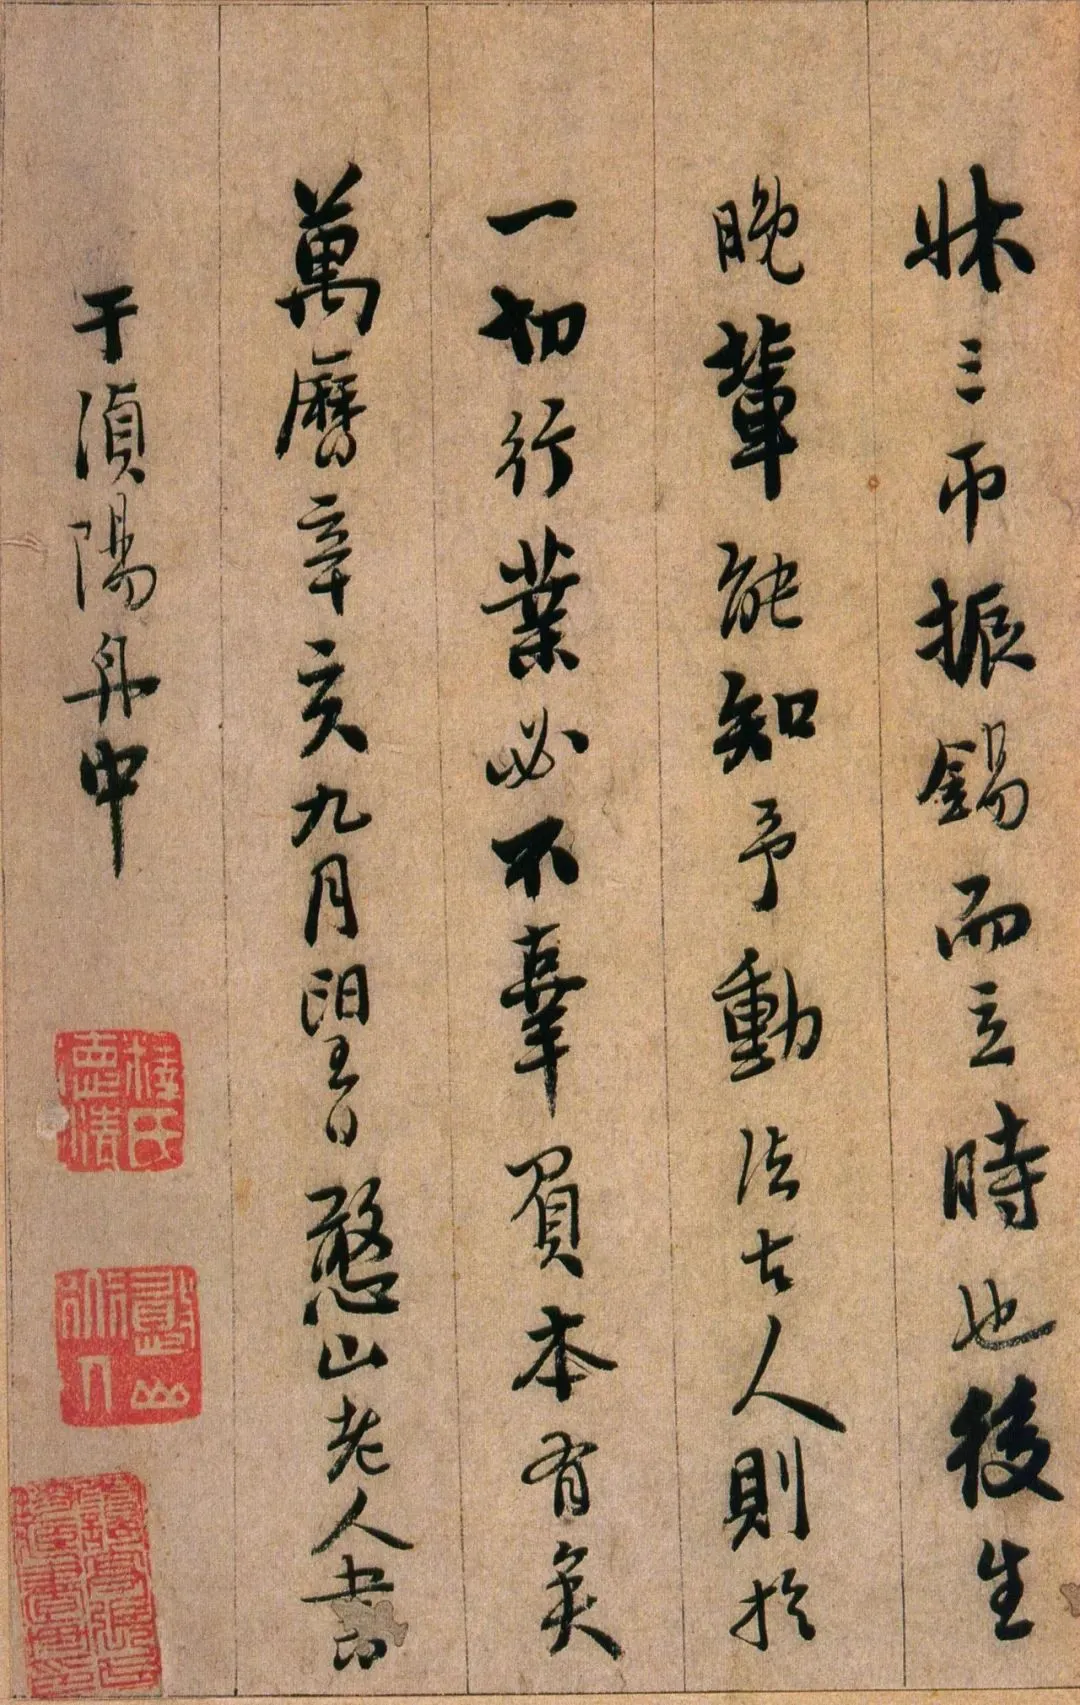 牀三帀振錫而立時也後生
晚輩能知予動法古人則於
一切行業必不辜負本有矣
萬曆辛亥九月朢日憨山老人書
于湞陽舟中
釋氏德清
憨山